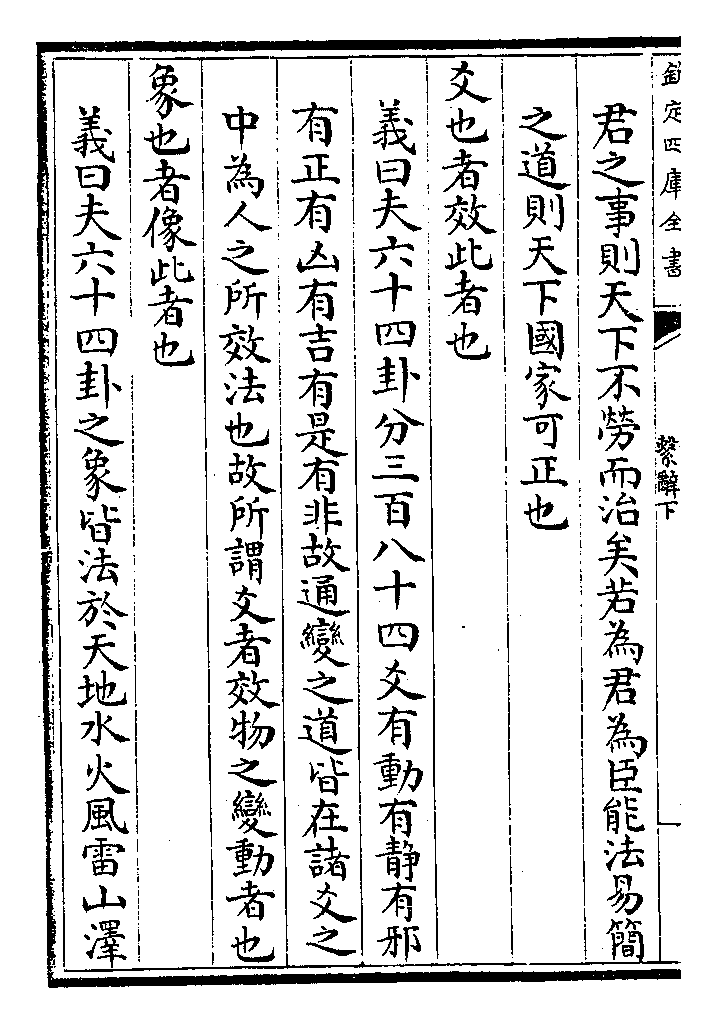 欽定四庫全書
繫辭下
君之事則天下不勞而治矣若為君為臣能法易簡
之道則天下國家可正也
爻也者效此者也
義曰夫六十四卦分三百八十四爻有動有静有邪
有正有凶有吉有是有非故通變之道皆在諸爻之
中為人之所效法也故所謂爻者效物之變動者也
象也者像此者也
義曰夫六十四卦之象皆法於天地水火風雷山澤